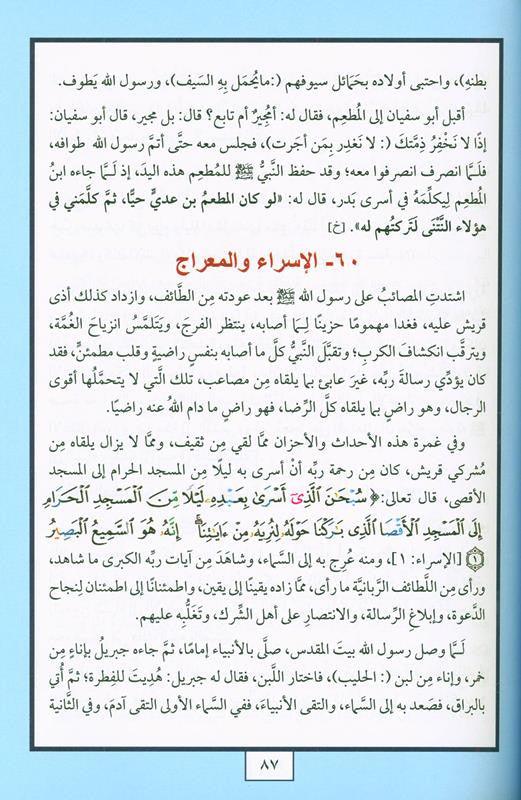 بطنهِ)، واحتبى أولاده بحَمَائل سيوفهم (:مايُحمَل بهِ السَيف)، ورسول الله يَطوف.
أقبل أبو سفيان إلى المُطعِم، فقال له: أمُجِيرٌ أم تابع؟ قال: بل مجير، قال أبو سفيان:
إذًا لا نَخْفِرُ ذِمَّتكَ (: لا نَغدِر بِمَن أجَرت)، فجلس معه حتَّى أتمَّ رسول الله طوافه،
فلَمَّا انصرف انصرفوا معه؛ وقد حفظ النَّبيُّ ﷺ للمُطعِم هذه اليدَ، إذ لَـمَّا جاءه ابنُ
المُطعِم لِيكلِّمَهُ في أسرى بَدر، قال له: «لو كان المطعمُ بن عديٍّ حيًّا، ثمَّ كلَّمَني في
هؤلاء النَّتْنَى لَتركتُهم له». [خ]
٦٠- الإسراء والمعراج
اشتدتِ المصائبُ على رسول الله ﷺ بعد عودته مِن الطَّائف، وازداد كذلك أذى
قريش عليه، فغدا مهمومًا حزينًا لِـمَا أصابه، ينتظر الفرجَ، ويَتَلمَّسُ انزياحَ الغُمَّة،
ويترقَّب انكشافَ الكربِ؛ وتقبَّلَ النَّبيُّ كلَّ ما أصابه بنفسٍ راضيةٍ وقلب مطمئنٍّ، فقد
كان يؤدِّي رسالةَ ربِّه، غيرَ عابئٍ بما يلقاه مِن مصاعب، تلك الَّتي لا يتحمَّلُها أقوى
الرجال، وهو راضٍ بما يلقاه كلَّ الرِّضا، فهو راضٍ ما دام اللهُ عنه راضيًا.
وفي غمرة هذه الأحداث والأحزان ممَّا لقي مِن ثقيف، وممَّا لا يزال يلقاه مِن
مُشركي قريش، كان مِن رحمة ربِّه أنْ أسرى به ليلًا مِن المسجد الحرام إلى المسجد
الأقصى، قال تعالى:﴿ سُبْحَٰنَ ٱلَّذِىٓ أَسْرَىٰ بِعَبْدِهِۦ لَيْلًا مِّنَ ٱلْمَسْجِدِ ٱلْحَرَامِ
إِلَى ٱلْمَسْجِدِ ٱلْأَقْصَا ٱلَّذِى بَٰرَكْنَا حَوْلَهُۥ لِنُرِيَهُۥ مِنْ ءَايَٰتِنَآ ۚ إِنَّهُۥ هُوَ ٱلسَّمِيعُ ٱلْبَصِيرُ
۝١﴾ [الإسراء: ١]، ومنه عُرِج به إلى السَّماء، وشاهَدَ مِن آيات ربِّه الكبرى ما شاهد،
ورأى مِن اللَّطائف الرَّبَّانيَّة ما رأى، ممَّا زاده يقينًا إلى يقين، واطمئنانًا إلى اطمئنان لِنجاح
الدَّعوة، وإبلاغِ الرِّسالة، والانتصارِ على أهل الشِّرك، وتَغَلُّبِه عليهم.
لَـمَّا وصل رسول الله بيتَ المقدس، صلَّى بالأنبياء إمامًا، ثمَّ جاءه جبريلُ بإناءٍ مِن
خمر، وإناء مِن لبن (: الحليب)، فاختار اللَّبن، فقال له جبريل: هُدِيتَ للفِطرة؛ ثمَّ أُتي
بالبراق، فصَعد به إلى السَّماء، والتقى الأنبياءَ، ففي السَّماء الأولى التقى آدمَ، وفي الثَّانية
٨٧